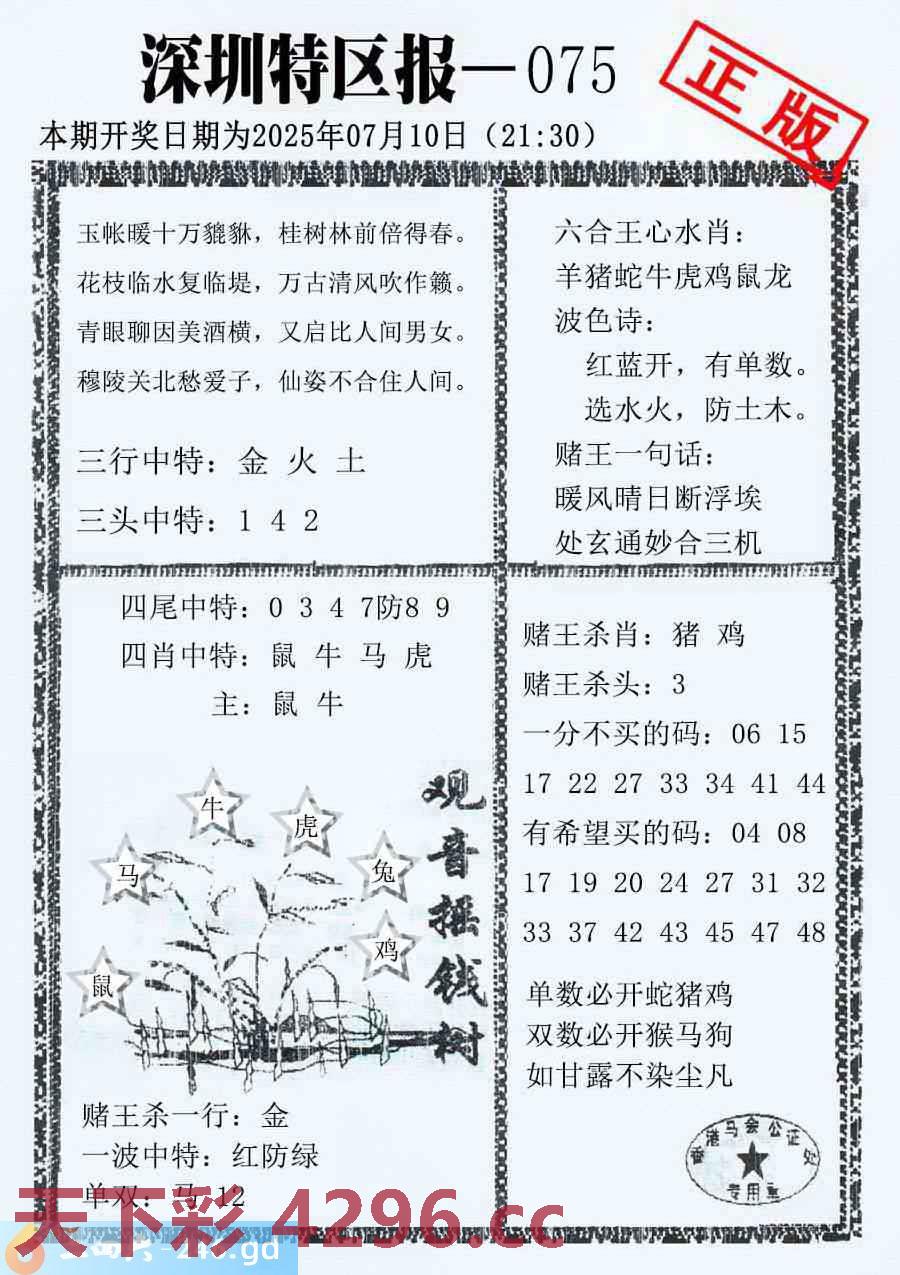 深圳特区报—075
正版
本期开奖日期为2025年07月10日（21:30）
玉帐暖十万貔貅，桂树林前倍得春。
花枝临水复临堤，万古清风吹作籁。
青眼聊因美酒横，又启比人间男女。
穆陵关北愁爱子，仙姿不合住人间。
三行中特：金 火 土
三头中特：1 4 2
六合王心水肖：
羊猪蛇牛虎鸡鼠龙
波色诗：
红蓝开，有单数。
选水火，防土木。
赌王一句话：
暖风晴日断浮埃
处玄通妙合三机
四尾中特：0 3 4 7防8 9
四肖中特：鼠 牛 马 虎
主：鼠 牛
牛
虎
马
兔
鸡
鼠
观音摇钱树
赌王杀一行：金
一波中特：红防绿
单双：马 12
赌王杀肖：猪 鸡
赌王杀头：3
一分不买的码：06 15
17 22 27 33 34 41 44
有希望买的码：04 08
17 19 20 24 27 31 32
33 37 42 43 45 47 48
单数必开蛇猪鸡
双数必开猴马狗
如甘露不染尘凡
香港马会公证处
专用章
天下彩 4296.cc